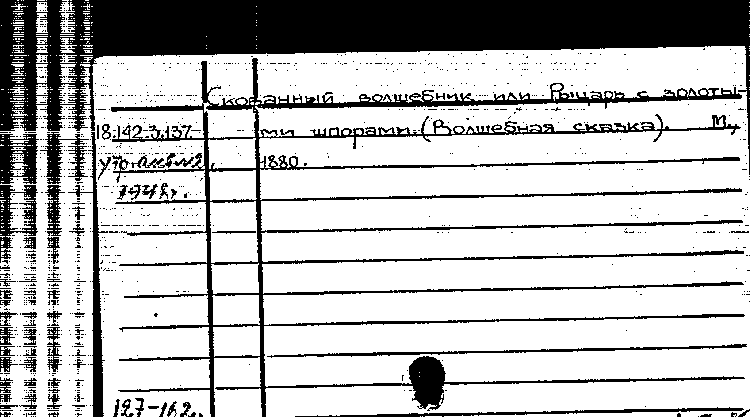 Скованный волшебник или Рыцарь с золоты-
18.142.3.137 ми шпорами. (Волшебная сказка). М.,
1880.
1948г.
127-162.